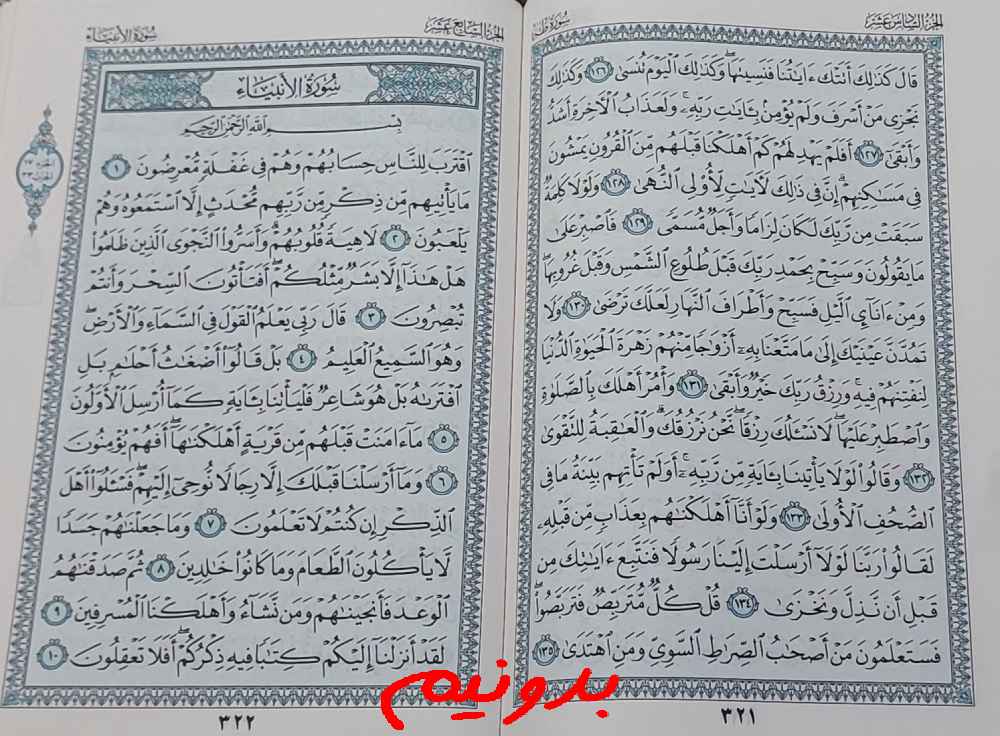 الجزء السادس عشر
سورة طه
قَالَ كَذَٰلِكَ أَتَتْكَ ءَايَٰتُنَا فَنَسِيتَهَا ۖ وَكَذَٰلِكَ ٱلْيَوْمَ تُنسَىٰ ١٢٦ وَكَذَٰلِكَ
نَجْزِى مَنْ أَسْرَفَ وَلَمْ يُؤْمِنۢ بِـَٔايَٰتِ رَبِّهِۦ ۚ وَلَعَذَابُ ٱلْءَاخِرَةِ أَشَدُّ
وَأَبْقَىٰٓ ١٢٧ أَفَلَمْ يَهْدِ لَهُمْ كَمْ أَهْلَكْنَا قَبْلَهُم مِّنَ ٱلْقُرُونِ يَمْشُونَ
فِى مَسَٰكِنِهِمْ ۗ إِنَّ فِى ذَٰلِكَ لَءَايَٰتٍ لِّأُو۟لِى ٱلنُّهَىٰ ١٢٨ وَلَوْلَا كَلِمَةٌ
سَبَقَتْ مِن رَّبِّكَ لَكَانَ لِزَامًا وَأَجَلٌ مُّسَمًّى ١٢٩ فَٱصْبِرْ عَلَىٰ
مَا يَقُولُونَ وَسَبِّحْ بِحَمْدِ رَبِّكَ قَبْلَ طُلُوعِ ٱلشَّمْسِ وَقَبْلَ غُرُوبِهَا ۖ
وَمِنْ ءَانَآئِ ٱلَّيْلِ فَسَبِّحْ وَأَطْرَافَ ٱلنَّهَارِ لَعَلَّكَ تَرْضَىٰ ١٣٠ وَلَا
تَمُدَّنَّ عَيْنَيْكَ إِلَىٰ مَا مَتَّعْنَا بِهِۦٓ أَزْوَٰجًا مِّنْهُمْ زَهْرَةَ ٱلْحَيَوٰةِ ٱلدُّنْيَا
لِنَفْتِنَهُمْ فِيهِ ۚ وَرِزْقُ رَبِّكَ خَيْرٌ وَأَبْقَىٰ ١٣١ وَأْمُرْ أَهْلَكَ بِٱلصَّلَوٰةِ
وَٱصْطَبِرْ عَلَيْهَا ۖ لَا نَسْـَٔلُكَ رِزْقًا ۖ نَّحْنُ نَرْزُقُكَ ۗ وَٱلْعَٰقِبَةُ لِلتَّقْوَىٰ
١٣٢ وَقَالُوا۟ لَوْلَا يَأْتِينَا بِـَٔايَةٍ مِّن رَّبِّهِۦٓ ۚ أَوَلَمْ تَأْتِهِم بَيِّنَةُ مَا فِى
ٱلصُّحُفِ ٱلْأُولَىٰ ١٣٣ وَلَوْ أَنَّآ أَهْلَكْنَٰهُم بِعَذَابٍ مِّن قَبْلِهِۦ
لَقَالُوا۟ رَبَّنَا لَوْلَآ أَرْسَلْتَ إِلَيْنَا رَسُولًا فَنَتَّبِعَ ءَايَٰتِكَ مِن
قَبْلِ أَن نَّذِلَّ وَنَخْزَىٰ ١٣٤ قُلْ كُلٌّ مُّتَرَبِّصٌ فَتَرَبَّصُوا۟ ۖ
فَسَتَعْلَمُونَ مَنْ أَصْحَٰبُ ٱلصِّرَٰطِ ٱلسَّوِىِّ وَمَنِ ٱهْتَدَىٰ ١٣٥
٣٢١
الجزء السابع عشر
سورة الأنبياء
سُورَةُ الأَنبِيَاءِ
بِسْمِ ٱللَّهِ ٱلرَّحْمَٰنِ ٱلرَّحِيمِ
ٱقْتَرَبَ لِلنَّاسِ حِسَابُهُمْ وَهُمْ فِى غَفْلَةٍ مُّعْرِضُونَ ١
مَا يَأْتِيهِم مِّن ذِكْرٍ مِّن رَّبِّهِم مُّحْدَثٍ إِلَّا ٱسْتَمَعُوهُ وَهُمْ
يَلْعَبُونَ ٢ لَاهِيَةً قُلُوبُهُمْ ۗ وَأَسَرُّوا۟ ٱلنَّجْوَى ٱلَّذِينَ ظَلَمُوا۟
هَلْ هَٰذَآ إِلَّا بَشَرٌ مِّثْلُكُمْ ۖ أَفَتَأْتُونَ ٱلسِّحْرَ وَأَنتُمْ
تُبْصِرُونَ ٣ قَالَ رَبِّى يَعْلَمُ ٱلْقَوْلَ فِى ٱلسَّمَآءِ وَٱلْأَرْضِ ۖ
وَهُوَ ٱلسَّمِيعُ ٱلْعَلِيمُ ٤ بَلْ قَالُوٓا۟ أَضْغَٰثُ أَحْلَٰمٍۭ بَلِ
ٱفْتَرَىٰهُ بَلْ هُوَ شَاعِرٌ فَلْيَأْتِنَا بِـَٔايَةٍ كَمَآ أُرْسِلَ ٱلْأَوَّلُونَ
٥ مَآ ءَامَنَتْ قَبْلَهُم مِّن قَرْيَةٍ أَهْلَكْنَٰهَآ ۖ أَفَهُمْ يُؤْمِنُونَ
٦ وَمَآ أَرْسَلْنَا قَبْلَكَ إِلَّا رِجَالًا نُّوحِىٓ إِلَيْهِمْ ۖ فَسْـَٔلُوٓا۟ أَهْلَ
ٱلذِّكْرِ إِن كُنتُمْ لَا تَعْلَمُونَ ٧ وَمَا جَعَلْنَٰهُمْ جَسَدًا
لَّا يَأْكُلُونَ ٱلطَّعَامَ وَمَا كَانُوا۟ خَٰلِدِينَ ٨ ثُمَّ صَدَقْنَٰهُمُ
ٱلْوَعْدَ فَأَنجَيْنَٰهُمْ وَمَن نَّشَآءُ وَأَهْلَكْنَا ٱلْمُسْرِفِينَ ٩
لَقَدْ أَنزَلْنَآ إِلَيْكُمْ كِتَٰبًا فِيهِ ذِكْرُكُمْ ۖ أَفَلَا تَعْقِلُونَ ١٠
٣٢٢
بدونیم